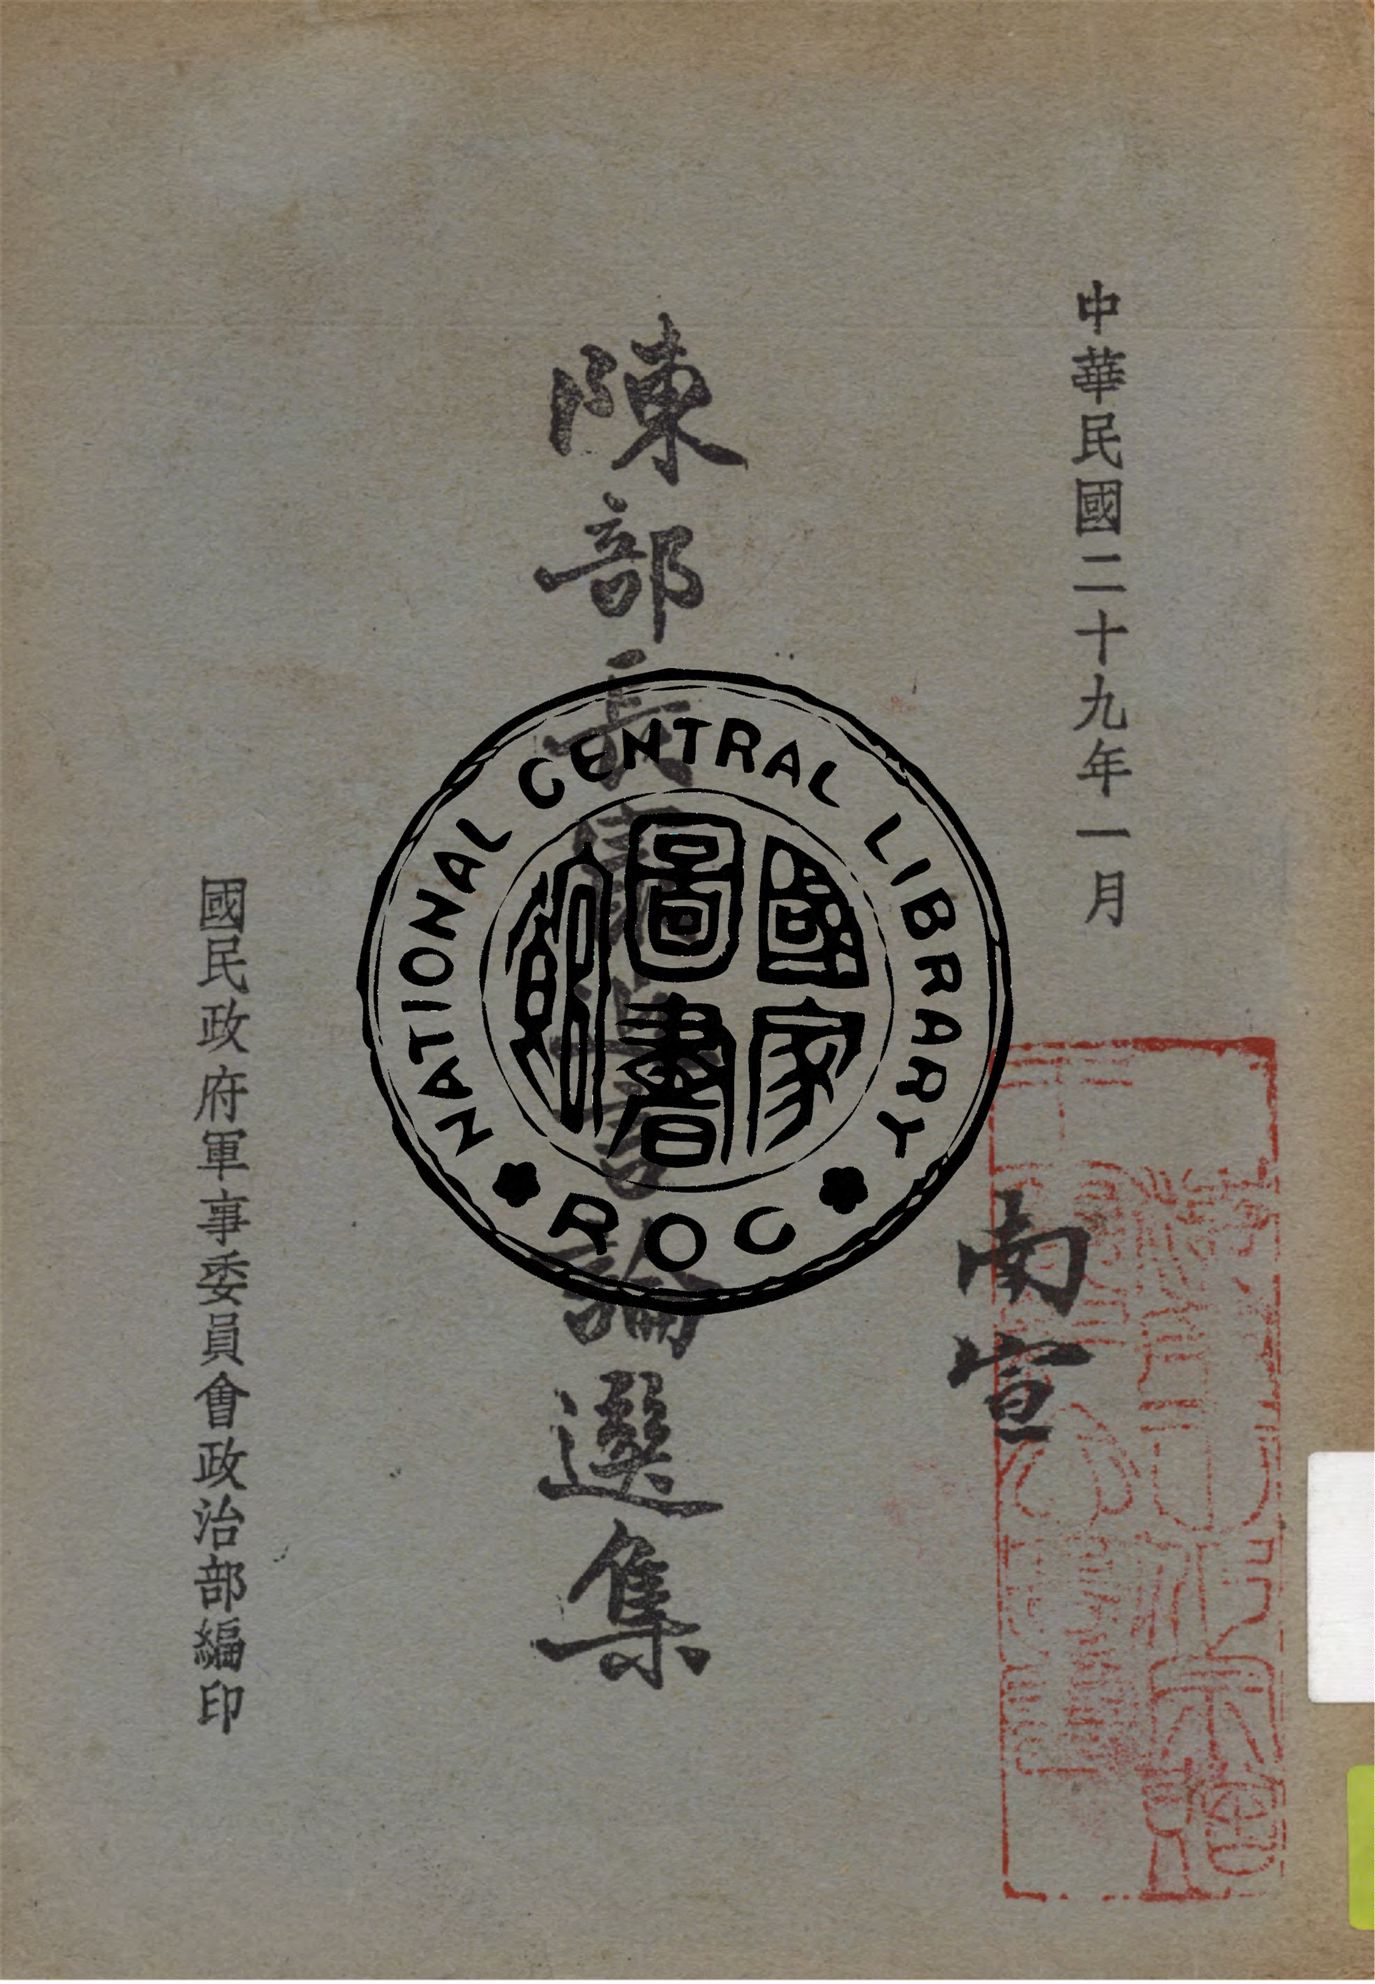 中華民國二十九年一月
南宣
陳部長言論選集
國民政府軍事委員會政治部編印
NATIONAL CENTRAL LIBRARY
ROC
國家圖書館